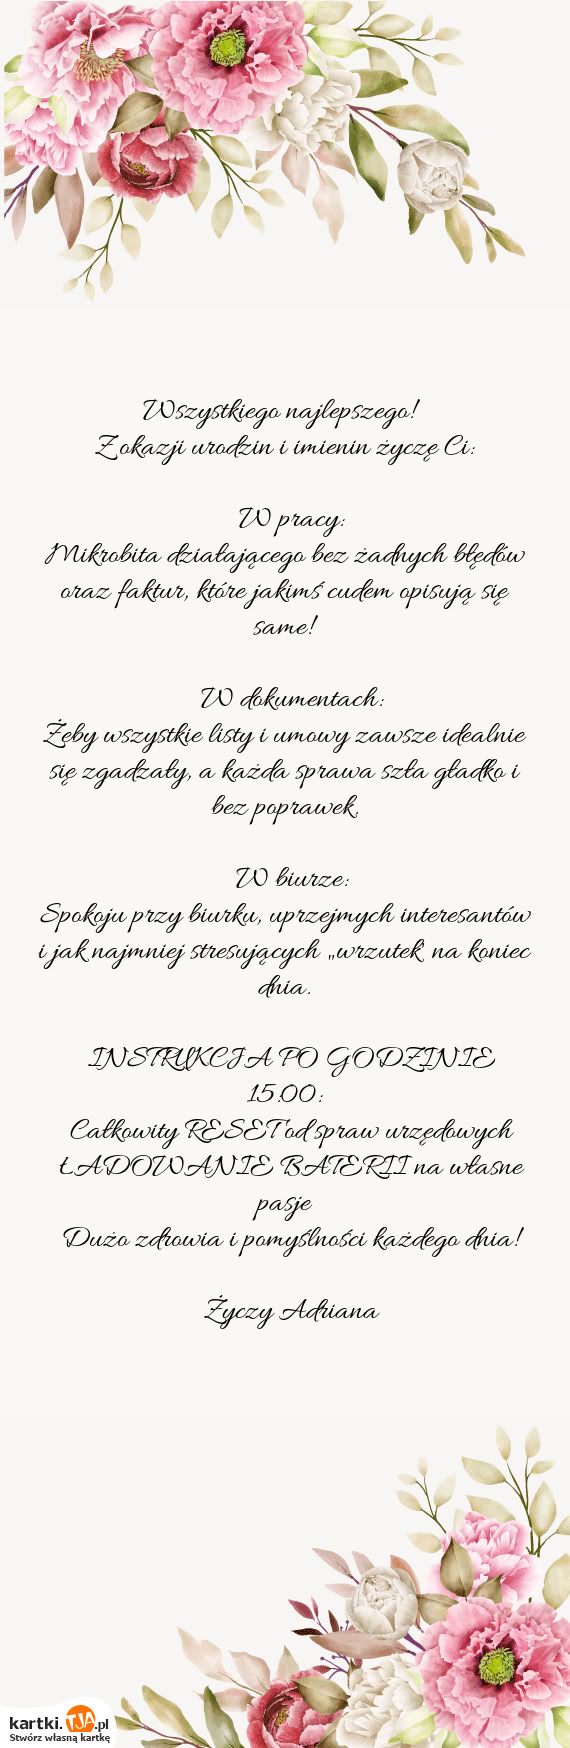 Wszystkiego najlepszego!
Z okazji urodzin i imienin życzę Ci:
W pracy:
Mikrobita działającego bez żadnych błędów
oraz faktur, które jakimś cudem opisują się
same!
W dokumentach:
Żeby wszystkie listy i umowy zawsze idealnie
się zgadzały, a każda sprawa szła gładko i
bez poprawek.
W biurze:
Spokoju przy biurku, uprzejmych interesantów
i jak najmniej stresujących „wrzutek" na koniec
dnia.
INSTRUKCJA PO GODZINIE
15:00:
Całkowity RESET od spraw urzędowych
ŁADOWANIE BATERII na własne
pasje
Dużo zdrowia i pomyślności każdego dnia!
Życzy Adriana
kartki.TJA.pl
Stwórz własną kartkę